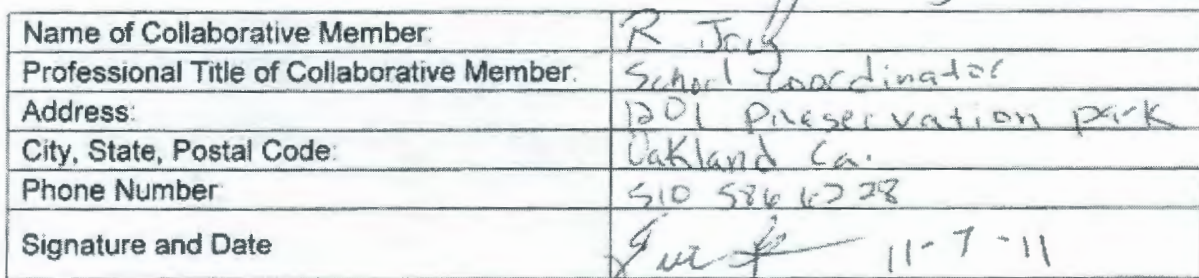 Name of Collaborative Member: R
Professional Title of Collaborative Member: School Coordinator
Address: 1201 Preservation park
City, State, Postal Code: Oakland Ca.
Phone Number: 510
Signature and Date 11-7-11